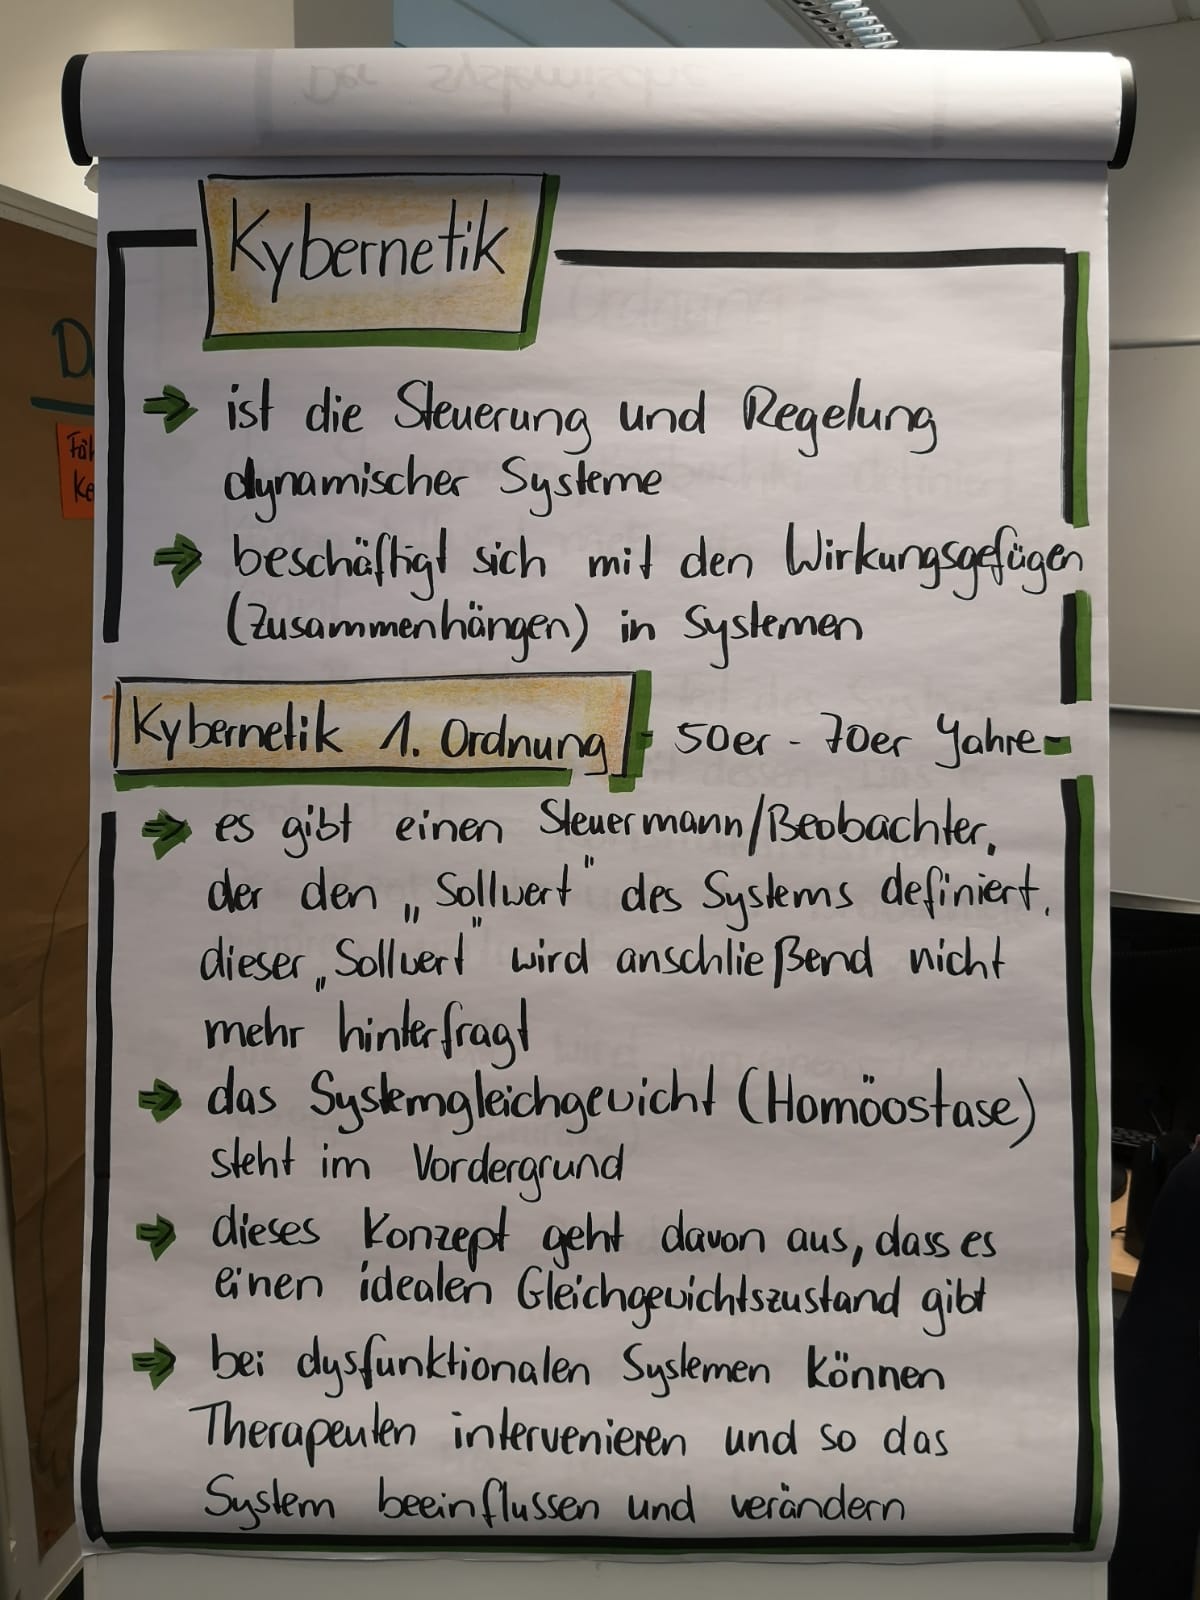 Der systemische
Kybernetik
⇒ ist die Steuerung und Regelung
dynamischer Systeme
⇒ beschäftigt sich mit den Wirkungsgefügen
(Zusammenhängen) in Systemen
Kybernetik 1. Ordnung - 50er - 70er Jahre
⇒ es gibt einen Steuermann/Beobachter,
der den „Sollwert" des Systems definiert,
dieser „Sollwert" wird anschließend nicht
mehr hinterfragt
⇒ das Systemgleichgewicht (Homöostase)
steht im Vordergrund
⇒ dieses Konzept geht davon aus, dass es
einen idealen Gleichgewichtszustand gibt
⇒ bei dysfunktionalen Systemen können
Therapeuten intervenieren und so das
System beeinflussen und verändern